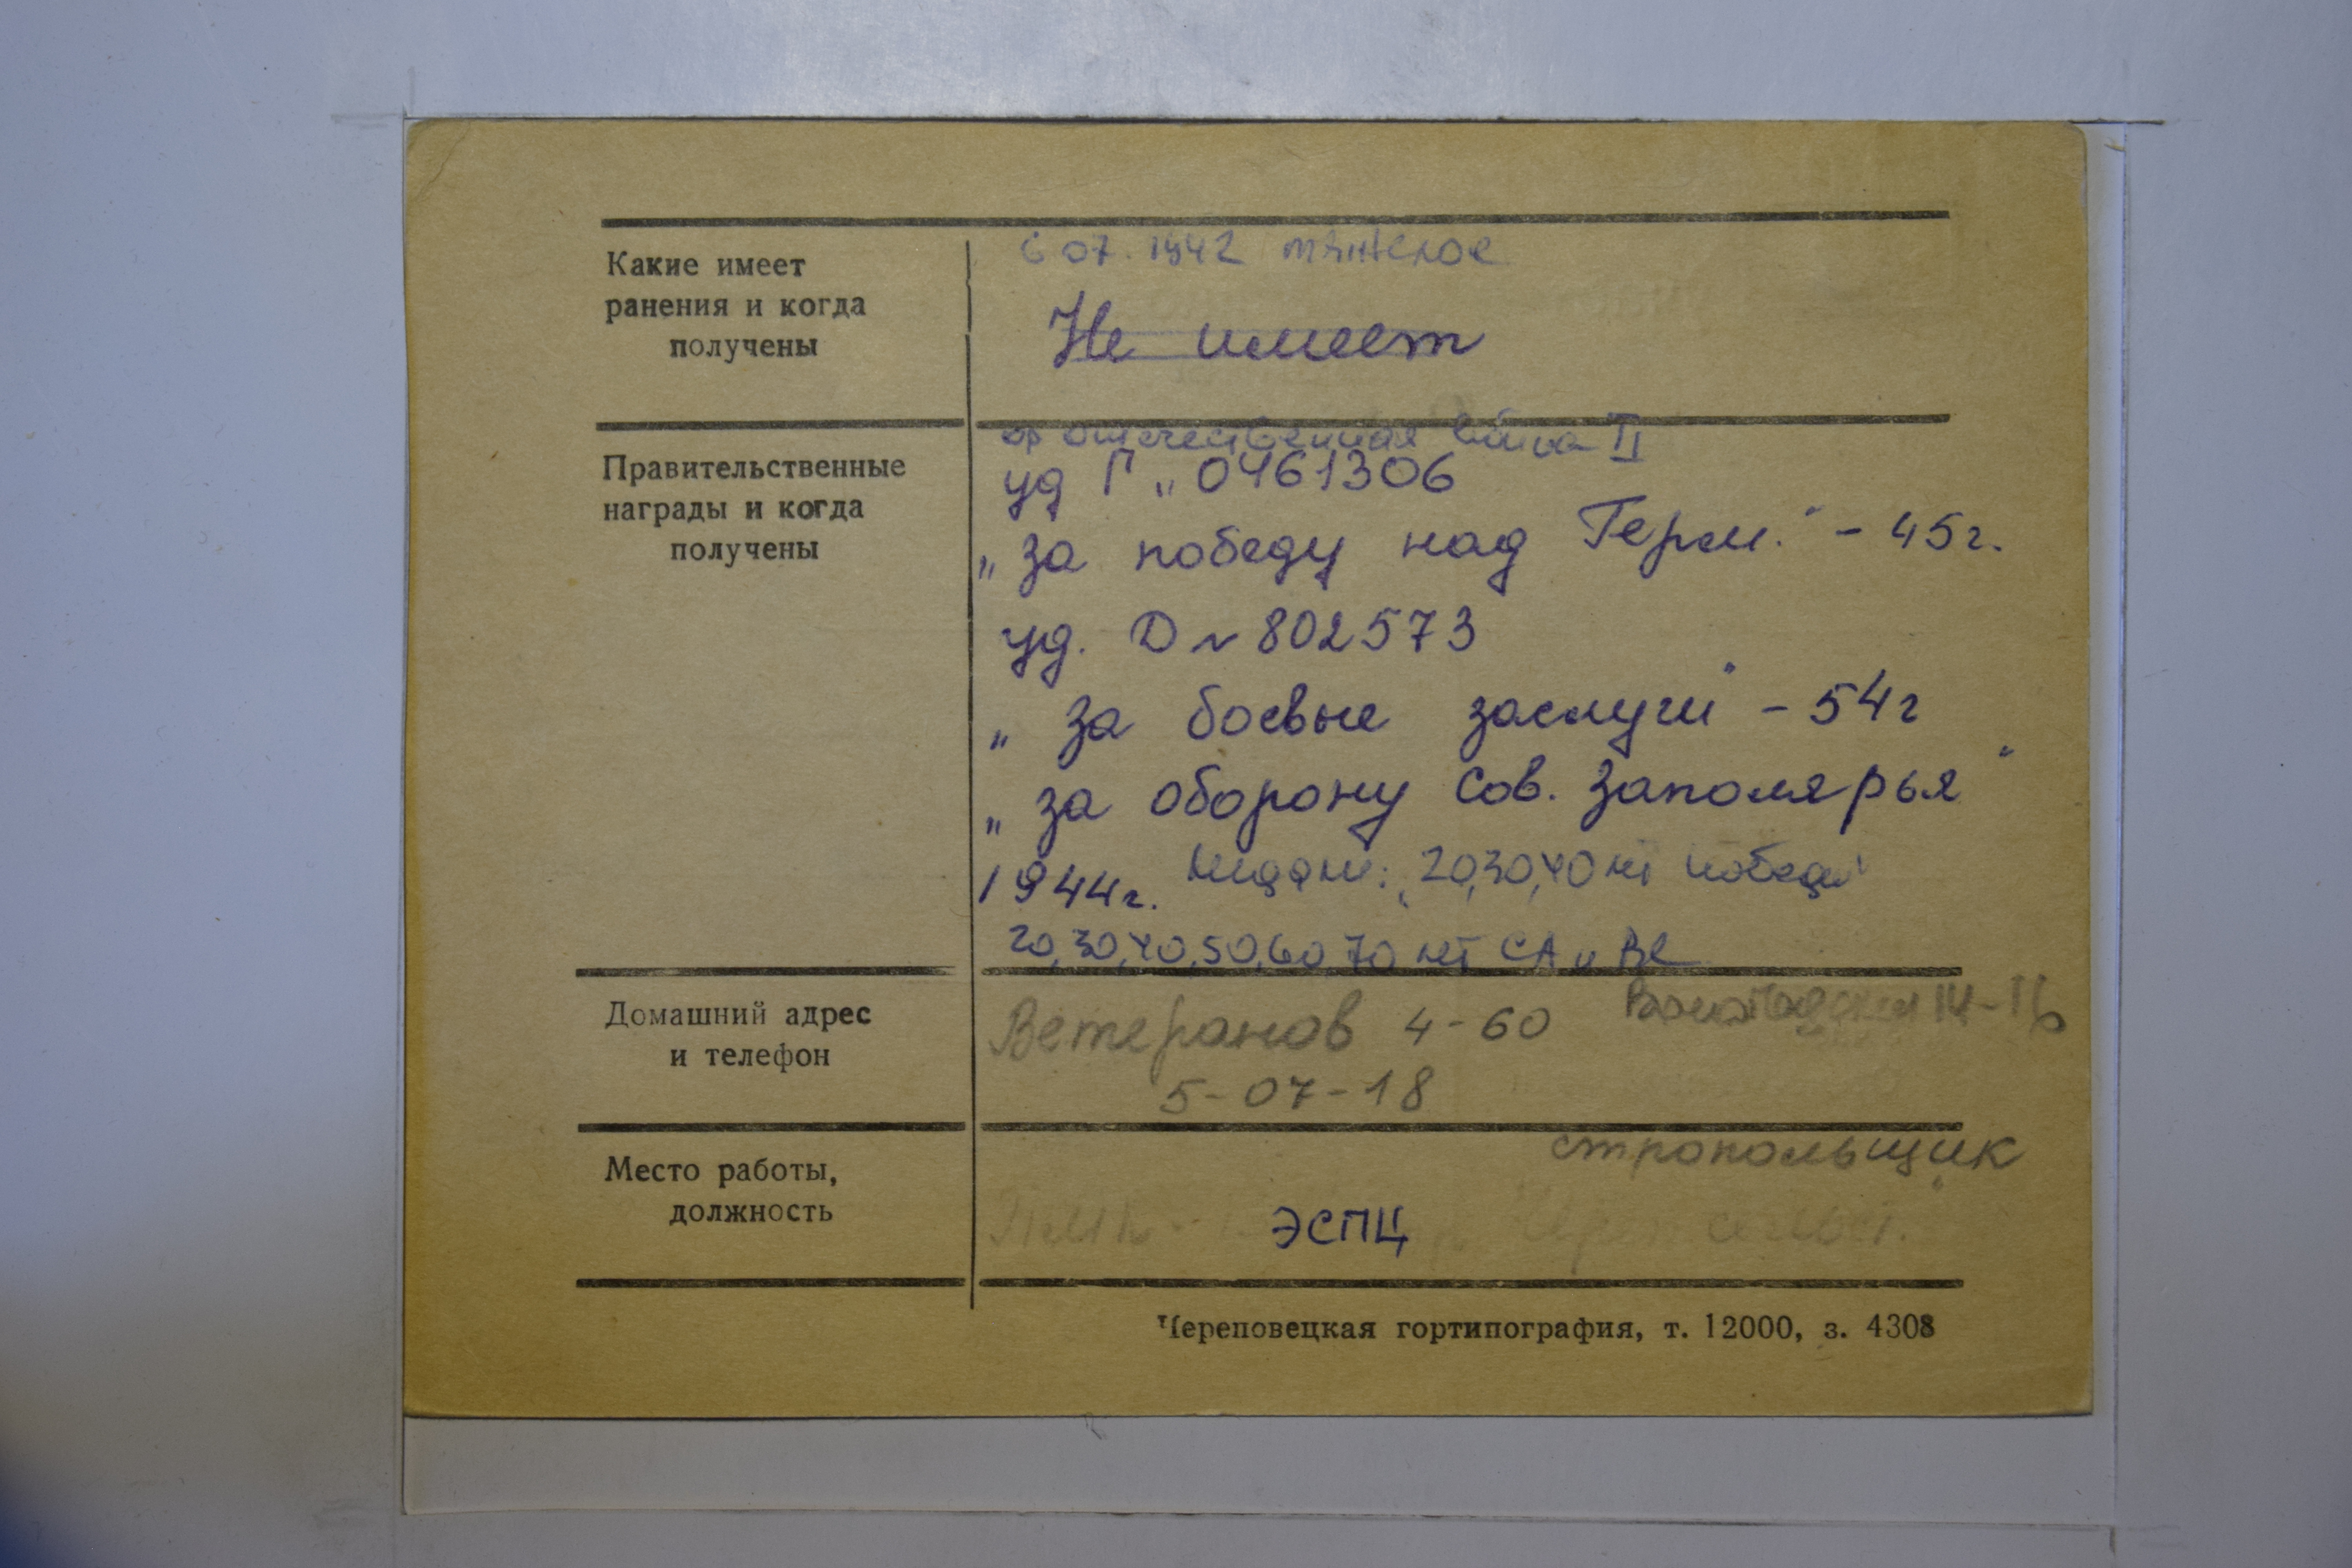 Какие имеет
ранения и когда
получены
6 07. 1942 тяжелое
Не имеет
Правительственные
награды и когда
получены
ор отечественная война II
уд Г „ 0461306
„за победу над Герм." - 45г.
уд. D N 802573
„за боевые заслуги" - 54г
„за оборону Сов. Заполярья"
1944г. Медали: „20,30,40 лет победы"
20,30,40,50,60,70 лет СА и ВС
Домашний адрес
и телефон
Ветеранов 4-60
14-16
5-07-18
Место работы,
должность
стропольщик
ЭСПЦ
Череповецкая гортипография, т. 12000, з. 4308